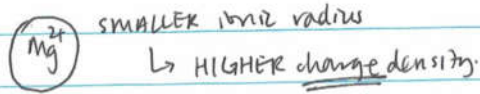 Mg²⁺ SMALLER ionic radius
↳ HIGHER charge density.